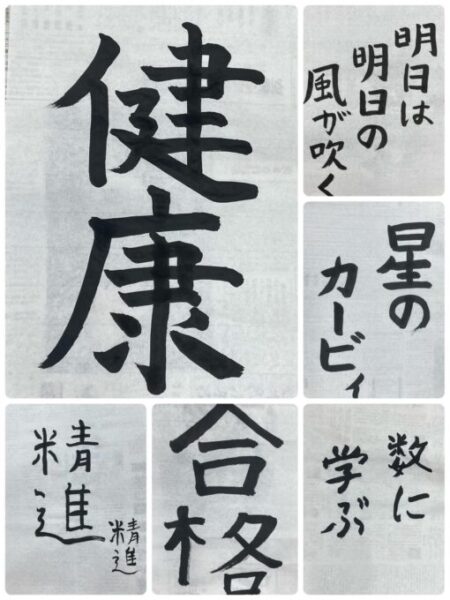 健康
明日は
明日の
風が吹く
星の
カービィ
精進
精進
合格
数に
学ぶ